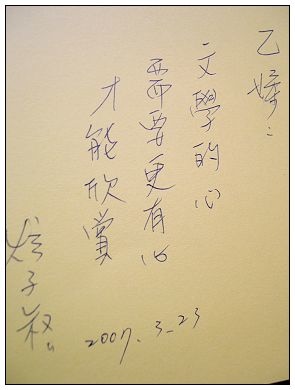 乙嫀：
文學的心
需要更有心
才能欣賞
2007.3.23